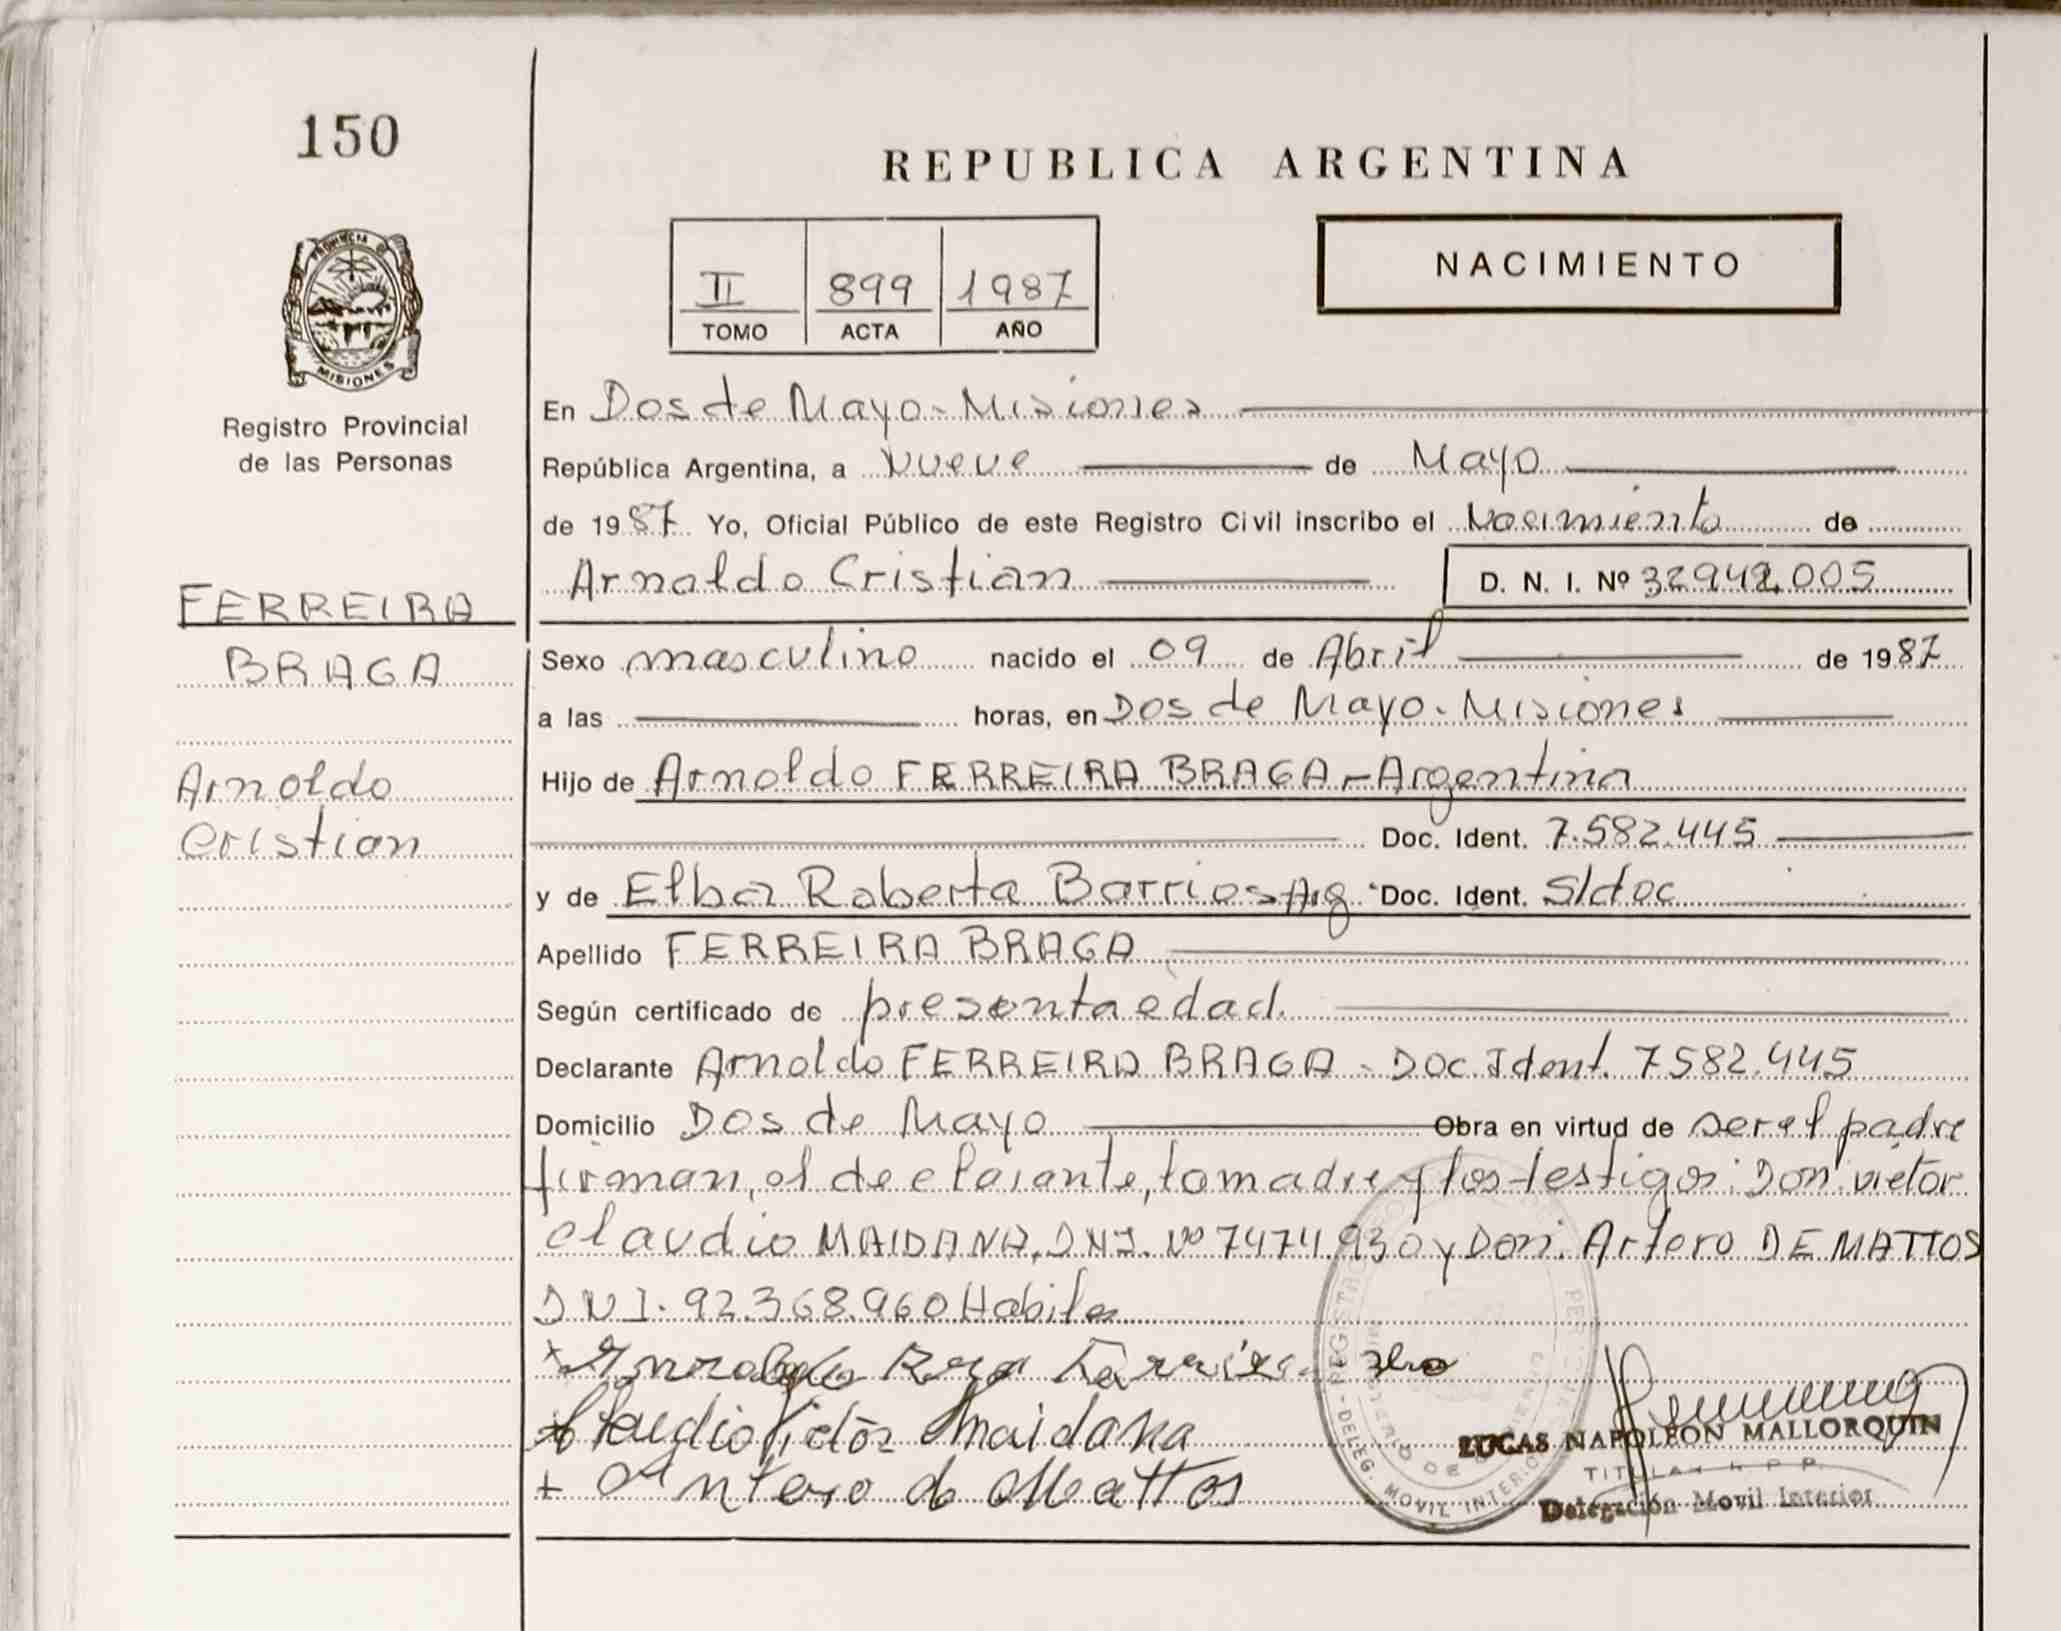 150
REPUBLICA ARGENTINA
II 899 1987
TOMO ACTA AÑO
NACIMIENTO
PROVINCIA DE
MISIONES
Registro Provincial
de las Personas
FERREIRA
BRAGA
Arnoldo
Cristian
En Dos de Mayo - Misiones
República Argentina, a Nueve de Mayo
de 1987 Yo, Oficial Público de este Registro Civil inscribo el Nacimiento de
Arnoldo Cristian D. N. I. Nº 32.942.005
Sexo masculino nacido el 09 de Abril de 1987
a las horas, en Dos de Mayo - Misiones
Hijo de Arnoldo FERREIRA BRAGA - Argentina
Doc. Ident. 7.582.445
y de Elba Roberta Barrios - Arg. Doc. Ident. S/doc
Apellido FERREIRA BRAGA
Según certificado de presenta edad.
Declarante Arnoldo FERREIRA BRAGA - Doc. Ident. 7582.445
Domicilio Dos de Mayo Obra en virtud de ser el padre
firman, el declarante, la madre y los testigos: Don Victor
Claudio MAIDANA, DNI. Nº 7474.930 y Don. Artero DE MATTOS
DNI. 92.368.960 Habiles
Claudio Victor Maidana
+ Antero de Mattos
LUCAS NAPOLEON MALLORQUIN
TITULAR R P P.
Delegación Movil Interior
DELEG. MOVIL INTERIOR